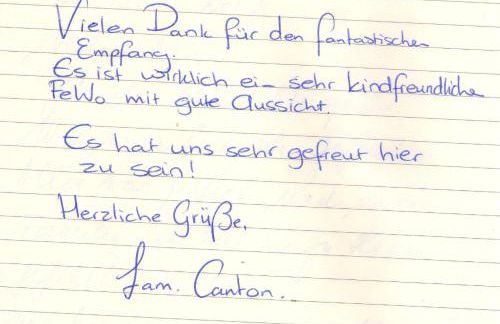 Vielen Dank für den fantastischen
Empfang.
Es ist wirklich ein sehr kindfreundliche
FeWo mit gute Aussicht.
Es hat uns sehr gefreut hier
zu sein!
Herzliche Grüße,
fam. Canton.